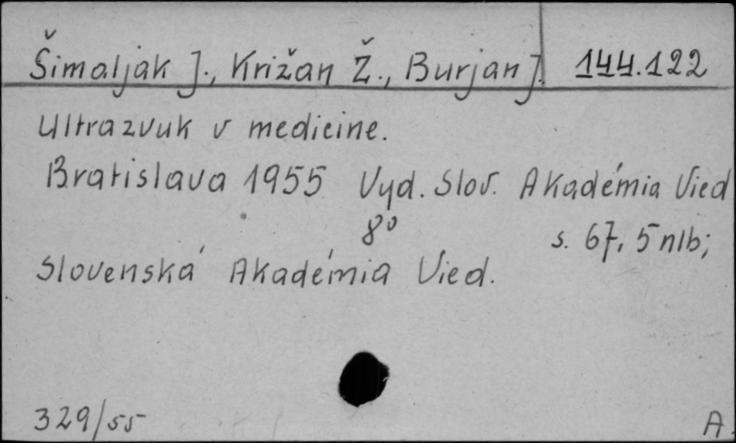 Šimaljak J., Križan Ž., Burjan J. 144.122
Ultrazvuk v medicine.
Bratislava 1955 Vyd. Slov. Akadémia Vied
8° s. 67, 5 nlb;
Slovenská Akadémia Vied.
329/55 A